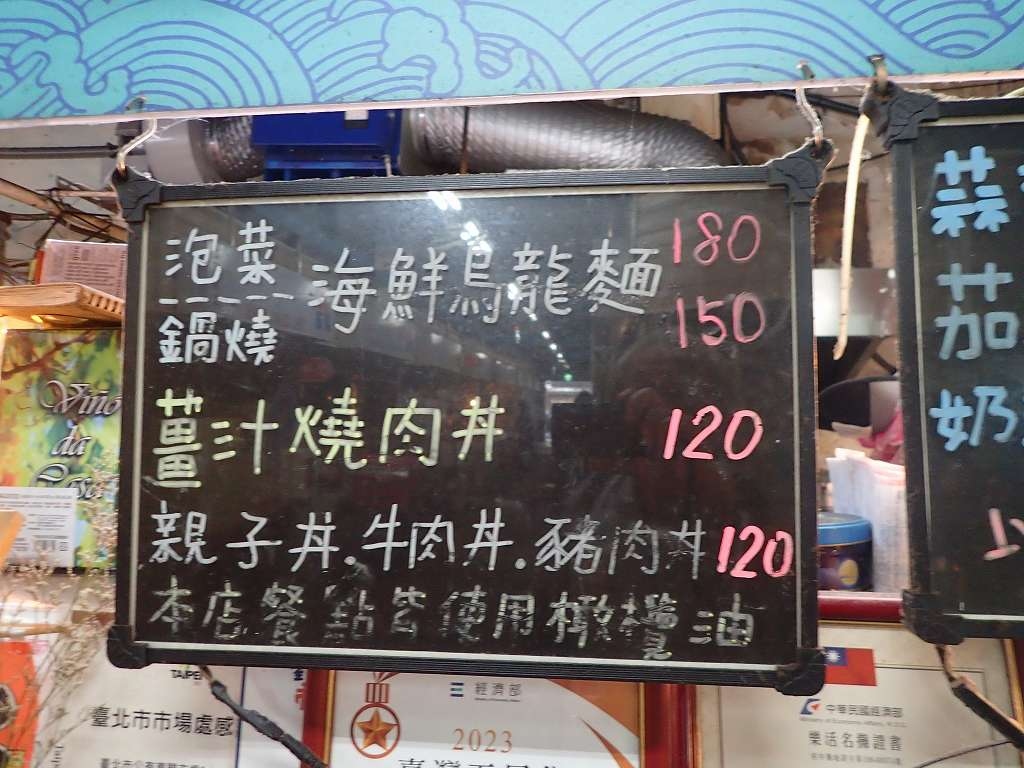 泡菜 海鮮烏龍麵 180
鍋燒 150
薑汁燒肉丼 120
親子丼.牛肉丼.豬肉丼 120
本店餐點皆使用橄欖油
蒜
茄
奶
Vino
da
TAIPEI
臺北市市場處感
經濟部
2023
中華民國經濟部
樂活名攤證書